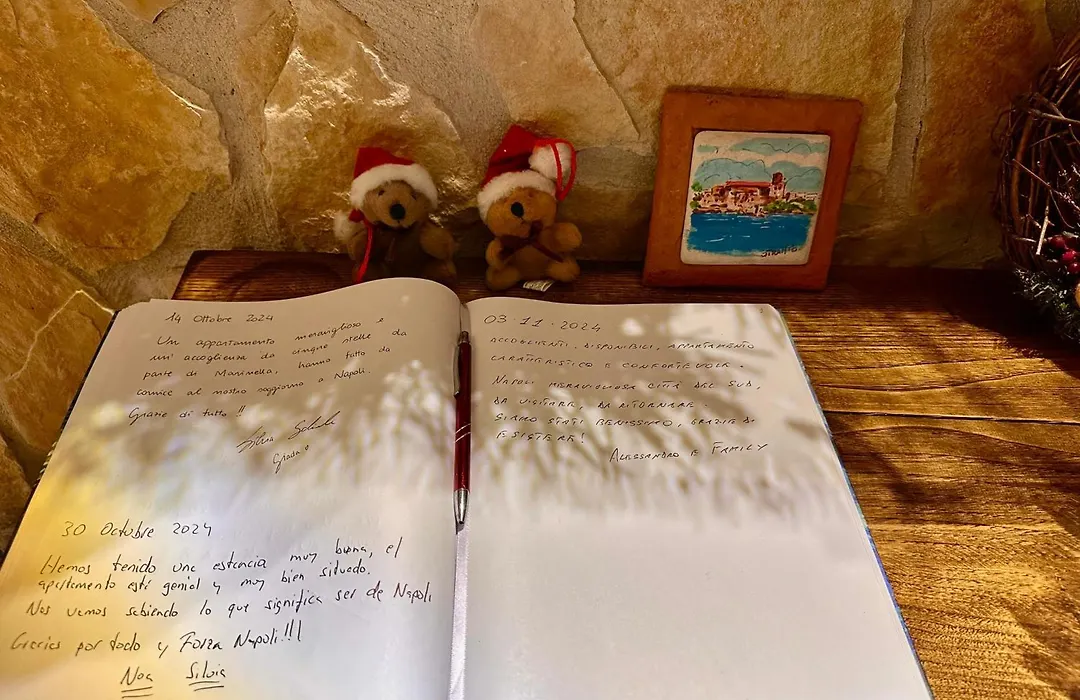 14 Ottobre 2024
Un appartamento meraviglioso e
un'accoglienza da cinque stelle da
parte di Marinella, hanno fatto da
cornice al nostro soggiorno a Napoli.
Grazie di tutto !!
30 Octubre 2024
Hemos tenido una estancia muy buena, el
apartamento está genial y muy bien situado.
Nos vamos sabiendo lo que significa ser de Napoli
Gracias por todo y Forza Napoli!!!
Noa Silvia
03-11-2024
ACCOGLIENTI, DISPONIBILI, APPARTAMENTO
CARATTERISTICO E CONFORTEVOLE.
NAPOLI MERAVIGLIOSA CITTÀ DEL SUD,
DA VISITARE, DA RITORNARE.
SIAMO STATI BENISSIMO, GRAZIE DI
ESISTERE!
ALESSANDRO E FAMILY